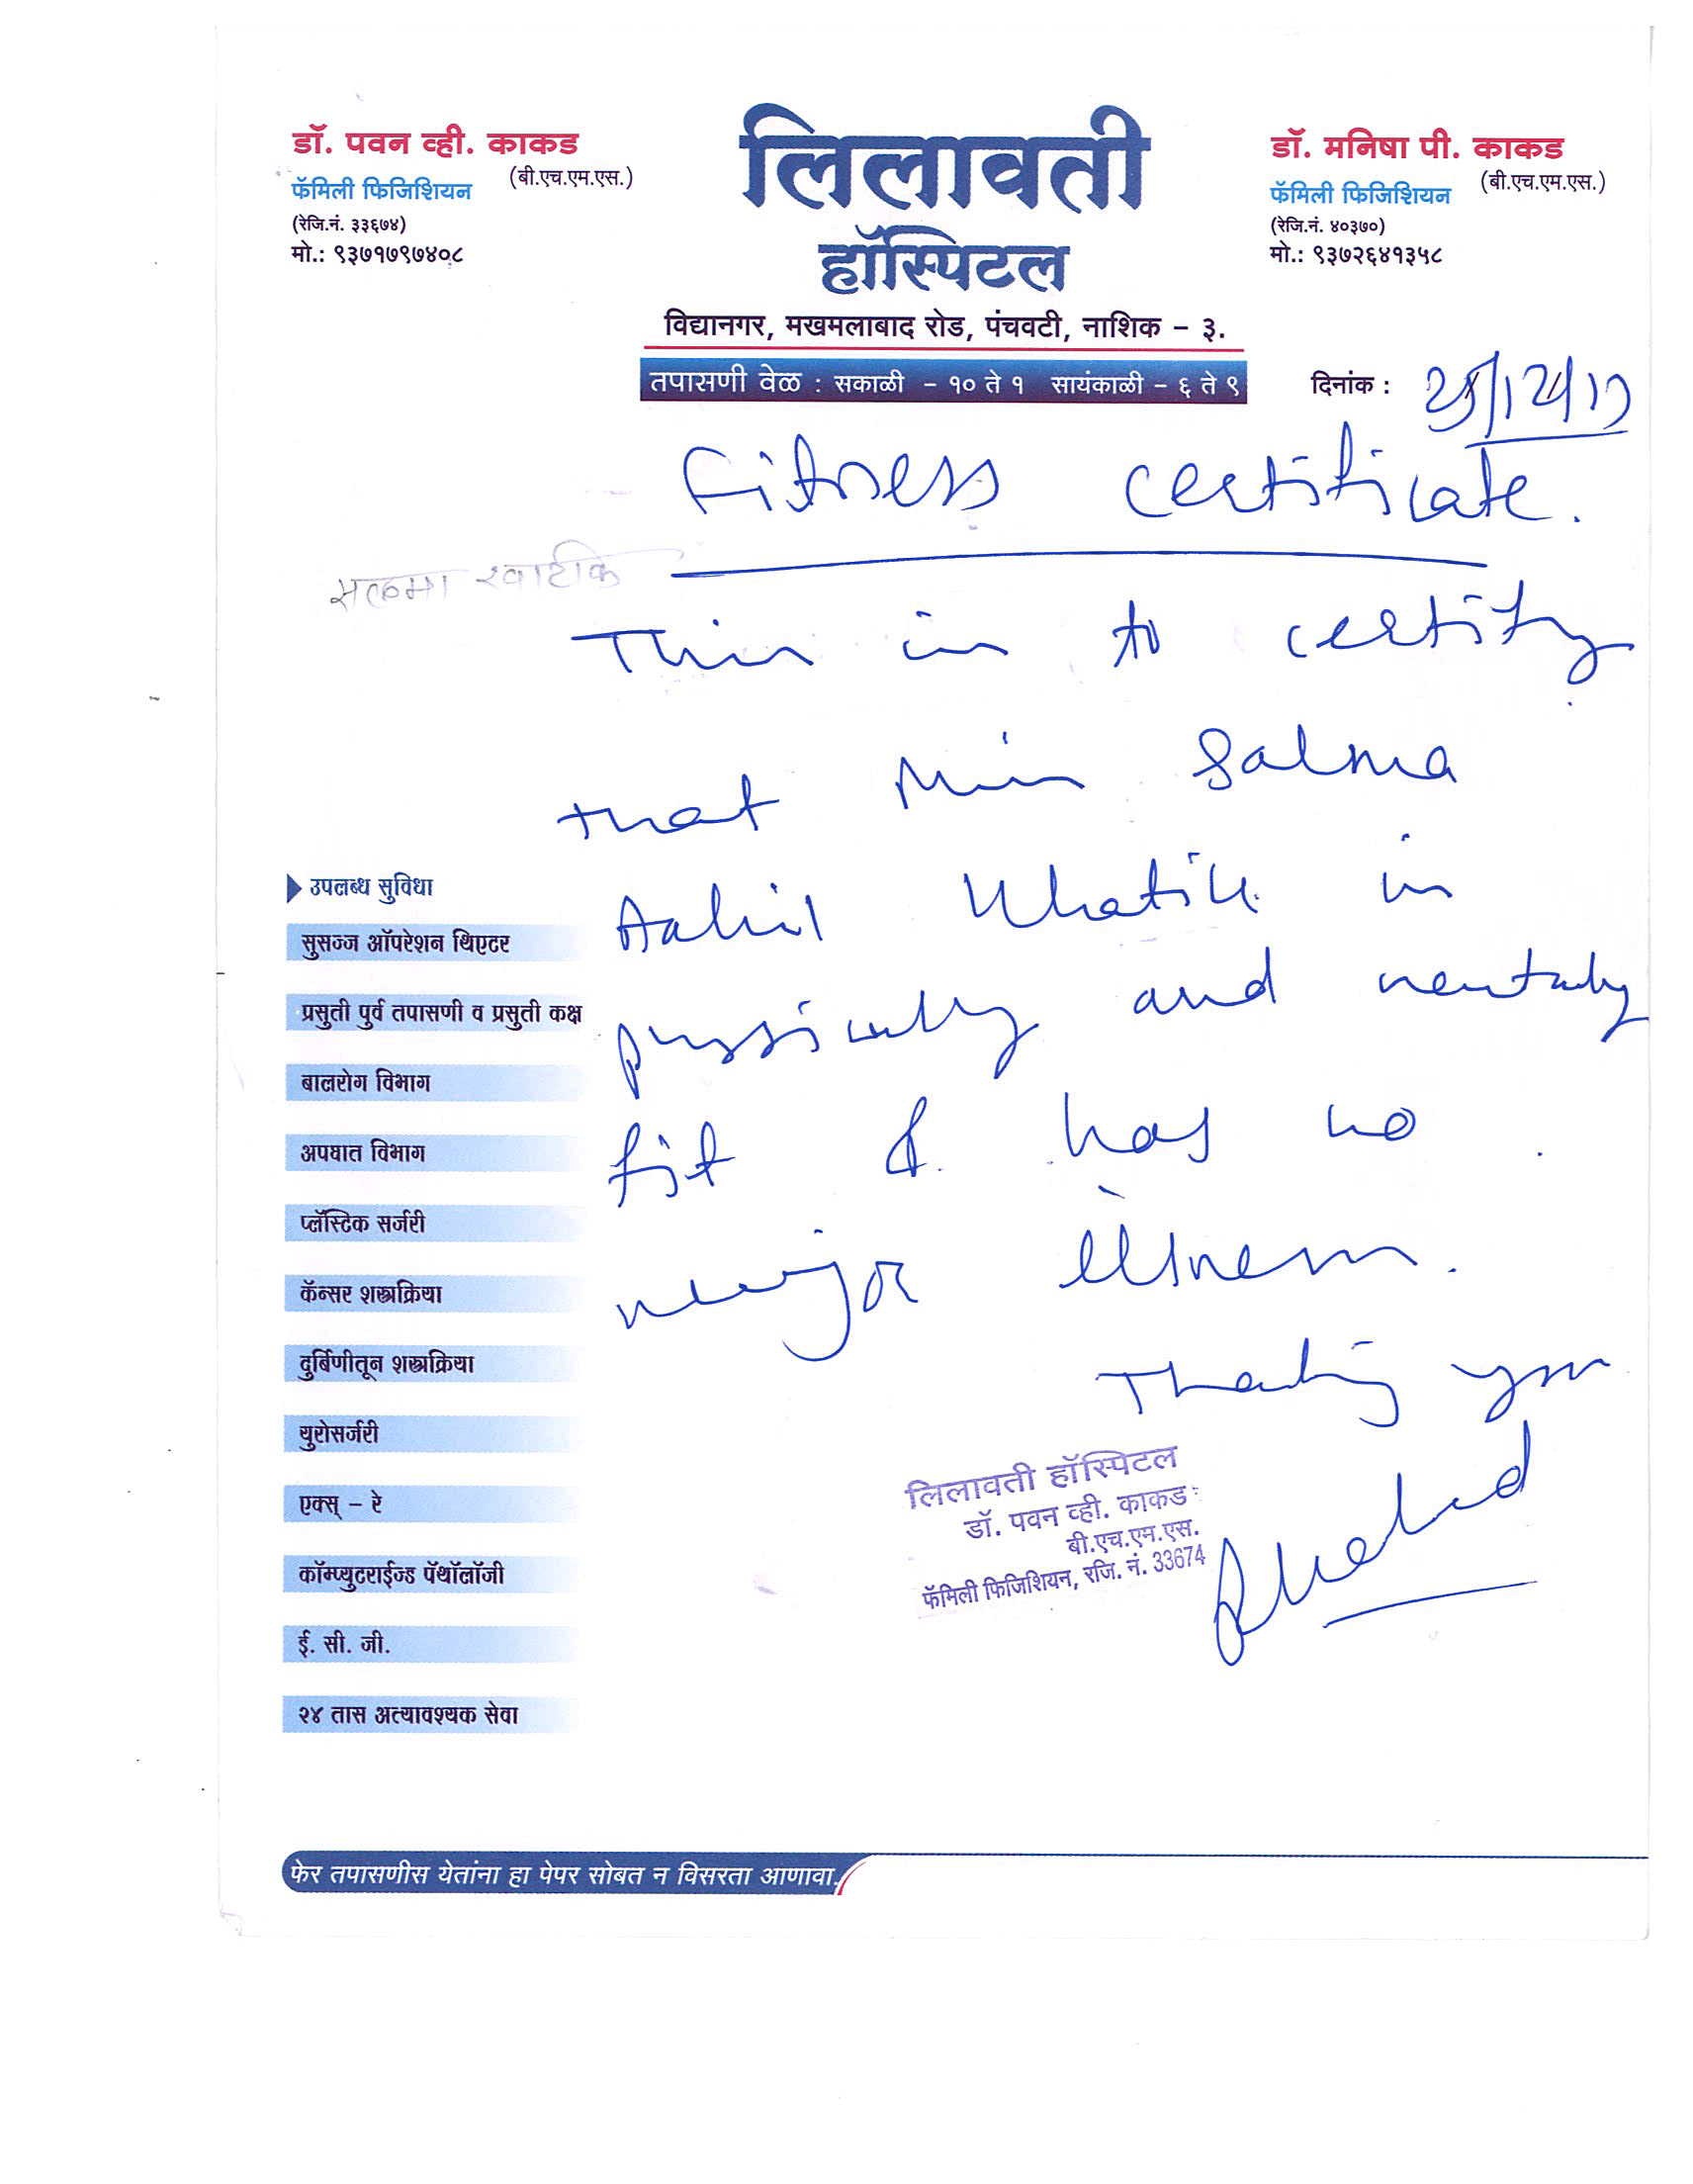 डॉ. पवन व्ही. काकड
(बी.एच.एम.एस.)
फॅमिली फिजिशियन
(रेजि.नं. ३३६७४)
मो.: ९३७१७९७४०८
लिलावती
हॉस्पिटल
विद्यानगर, मखमलाबाद रोड, पंचवटी, नाशिक - ३.
तपासणी वेळ : सकाळी - १० ते १ सायंकाळी - ६ ते ९
डॉ. मनिषा पी. काकड
(बी.एच.एम.एस.)
फॅमिली फिजिशियन
(रेजि.नं. ४०३७०)
मो.: ९३७२६४१३५८
दिनांक :
Fitness certificate.
सलमा खाटीक
This is to certify
that Miss Salma
Khatik is
physically and mentaly
fit & has no
major illness.
Thanking you
लिलावती हॉस्पिटल
डॉ. पवन व्ही. काकड
बी.एच.एम.एस.
फॅमिली फिजिशियन, रजि. नं. 33674
उपलब्ध सुविधा
सुसज्ज ऑपरेशन थिएटर
प्रसुती पुर्व तपासणी व प्रसुती कक्ष
बालरोग विभाग
अपघात विभाग
प्लॅस्टिक सर्जरी
कॅन्सर शस्त्रक्रिया
दुर्बिणीतून शस्त्रक्रिया
युरोसर्जरी
एक्स् - रे
कॉम्प्युटराईज्ड पॅथॉलॉजी
ई. सी. जी.
२४ तास अत्यावश्यक सेवा
फेर तपासणीस येतांना हा पेपर सोबत न विसरता आणावा.